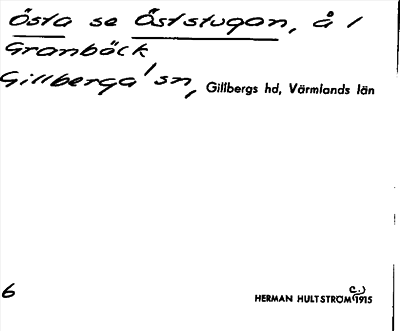 Östa se Öststugan, å 1
Granbäck
Gillberga sn, Gillbergs hd, Värmlands län
6
HERMAN HULTSTRÖM (c.) 1915